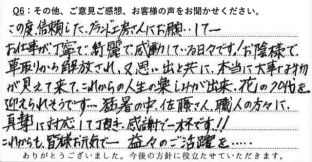 Q6：その他、ご意見ご感想、お客様の声をお聞かせください。
この度、信頼した、グランド工房さんにお願いして―
お仕事が丁寧で、綺麗で感動している日々です！お陰様で、
草取りから解放され、又、思い出と共に、本当に大事なお物
が見えて来て、これからの人生の楽しみが出来、花の70代を
迎えられそうです… 猛暑の中、佐藤さん、職人の方々に、
真摯に対応して頂き、感謝で一杯です!!
これからも、皆様お元気で― 益々のご活躍を……
ありがとうございました。今後の方針に役立たせていただきます。